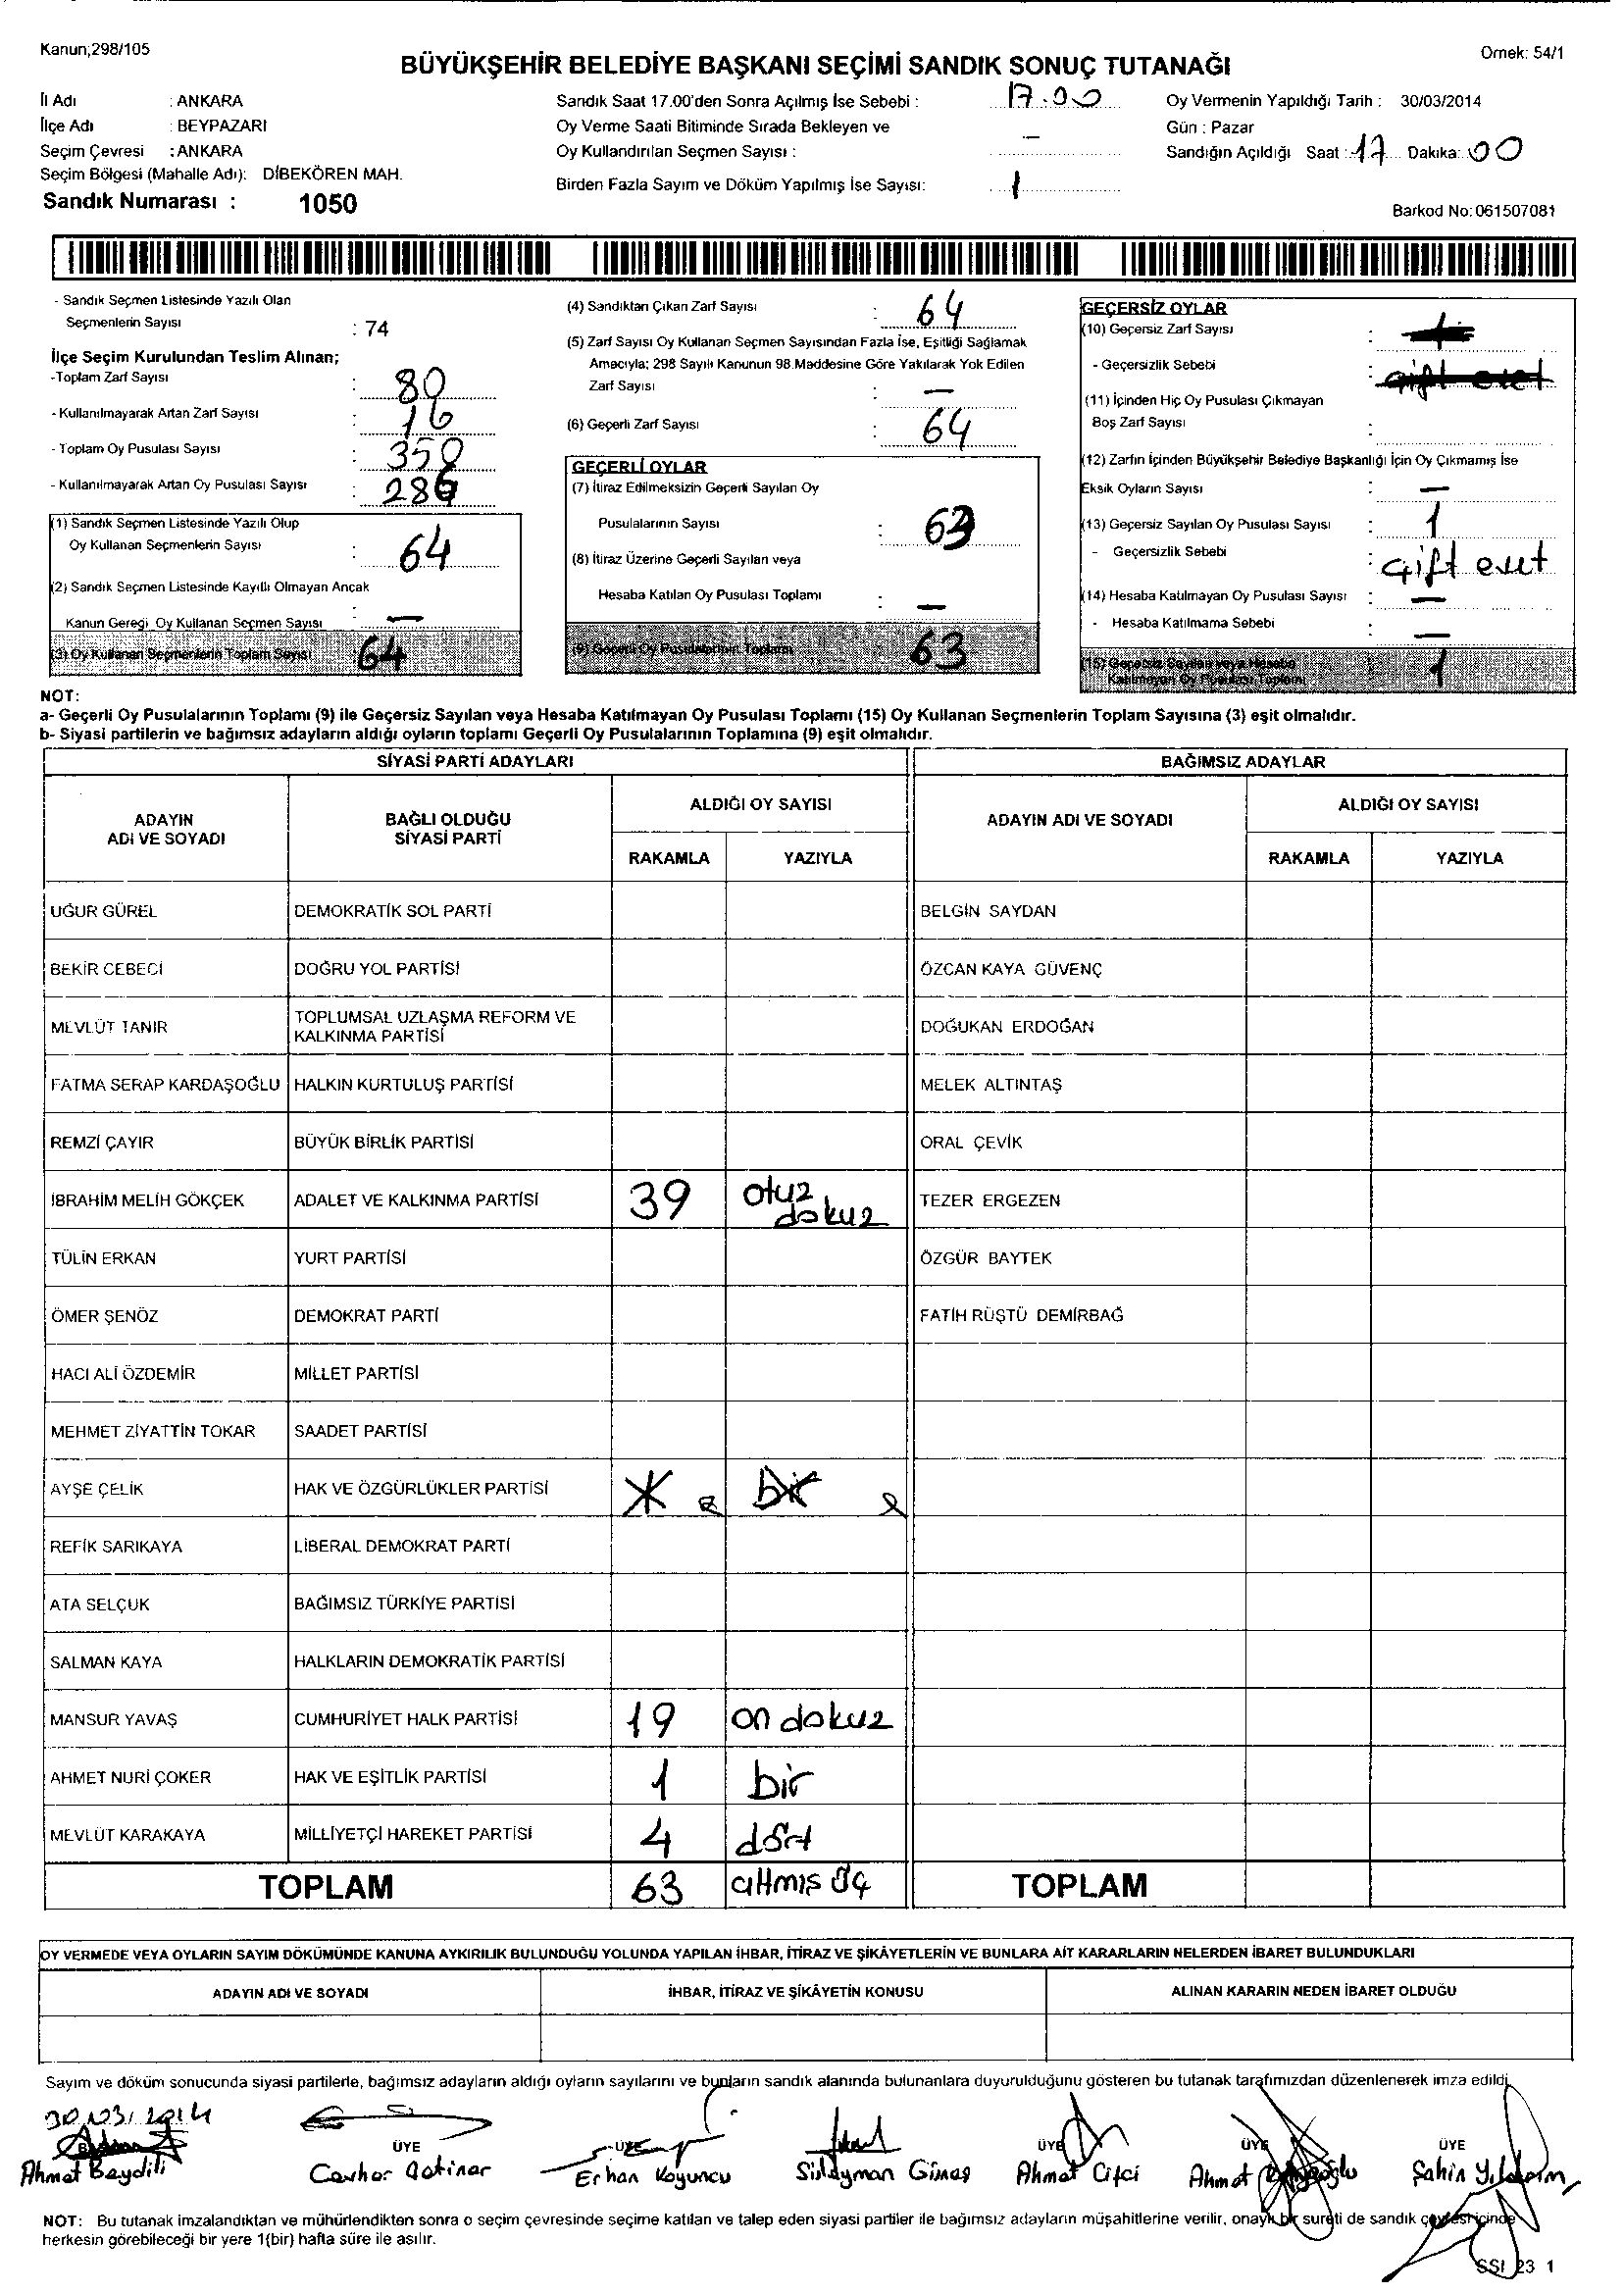 Kanun;298/105
Örnek: 54/1
BÜYÜKŞEHİR BELEDİYE BAŞKANI SEÇİMİ SANDIK SONUÇ TUTANAĞI
İl Adı : ANKARA
İlçe Adı : BEYPAZARI
Seçim Çevresi : ANKARA
Seçim Bölgesi (Mahalle Adı): DİBEKÖREN MAH.
Sandık Numarası : 1050
Sandık Saat 17.00'den Sonra Açılmış İse Sebebi : 17.00
Oy Verme Saati Bitiminde Sırada Bekleyen ve
Oy Kullandırılan Seçmen Sayısı : —
Birden Fazla Sayım ve Döküm Yapılmış İse Sayısı: 1
Oy Vermenin Yapıldığı Tarih : 30/03/2014
Gün : Pazar
Sandığın Açıldığı Saat : 17 Dakika: 00
Barkod No: 061507081
- Sandık Seçmen Listesinde Yazılı Olan
Seçmenlerin Sayısı : 74
İlçe Seçim Kurulundan Teslim Alınan;
-Toplam Zarf Sayısı : 80
- Kullanılmayarak Artan Zarf Sayısı : 16
- Toplam Oy Pusulası Sayısı : 350
- Kullanılmayarak Artan Oy Pusulası Sayısı : 286
(1) Sandık Seçmen Listesinde Yazılı Olup
Oy Kullanan Seçmenlerin Sayısı : 64
(2) Sandık Seçmen Listesinde Kayıtlı Olmayan Ancak
Kanun Gereği Oy Kullanan Seçmen Sayısı : —
(3) Oy Kullanan Seçmenlerin Toplam Sayısı 64
(4) Sandıktan Çıkan Zarf Sayısı : 64
(5) Zarf Sayısı Oy Kullanan Seçmen Sayısından Fazla İse, Eşitliği Sağlamak
Amacıyla; 298 Sayılı Kanunun 98.Maddesine Göre Yakılarak Yok Edilen
Zarf Sayısı : —
(6) Geçerli Zarf Sayısı : 64
GEÇERLİ OYLAR
(7) İtiraz Edilmeksizin Geçerli Sayılan Oy
Pusulalarının Sayısı : 63
(8) İtiraz Üzerine Geçerli Sayılan veya
Hesaba Katılan Oy Pusulası Toplamı : —
(9) Geçerli Oy Pusulalarının Toplamı 63
GEÇERSİZ OYLAR
(10) Geçersiz Zarf Sayısı :
- Geçersizlik Sebebi : çift evet
(11) İçinden Hiç Oy Pusulası Çıkmayan
Boş Zarf Sayısı :
(12) Zarfın İçinden Büyükşehir Belediye Başkanlığı İçin Oy Çıkmamış İse
Eksik Oyların Sayısı : —
(13) Geçersiz Sayılan Oy Pusulası Sayısı : 1
- Geçersizlik Sebebi : çift evet
(14) Hesaba Katılmayan Oy Pusulası Sayısı : —
- Hesaba Katılmama Sebebi : —
(15) Geçersiz Sayılan veya Hesaba
Katılmayan Oy Pusulası Toplamı 1
NOT:
a- Geçerli Oy Pusulalarının Toplamı (9) ile Geçersiz Sayılan veya Hesaba Katılmayan Oy Pusulası Toplamı (15) Oy Kullanan Seçmenlerin Toplam Sayısına (3) eşit olmalıdır.
b- Siyasi partilerin ve bağımsız adayların aldığı oyların toplamı Geçerli Oy Pusulalarının Toplamına (9) eşit olmalıdır.
SİYASİ PARTİ ADAYLARI
ADAYIN
ADI VE SOYADI
BAĞLI OLDUĞU
SİYASİ PARTİ
ALDIĞI OY SAYISI
RAKAMLA YAZIYLA
UĞUR GÜREL DEMOKRATİK SOL PARTİ
BEKİR CEBECİ DOĞRU YOL PARTİSİ
MEVLÜT TANIR TOPLUMSAL UZLAŞMA REFORM VE
KALKINMA PARTİSİ
FATMA SERAP KARDAŞOĞLU HALKIN KURTULUŞ PARTİSİ
REMZİ ÇAYIR BÜYÜK BİRLİK PARTİSİ
İBRAHİM MELİH GÖKÇEK ADALET VE KALKINMA PARTİSİ 39 otuz
dokuz
TÜLİN ERKAN YURT PARTİSİ
ÖMER ŞENÖZ DEMOKRAT PARTİ
HACI ALİ ÖZDEMİR MİLLET PARTİSİ
MEHMET ZİYATTİN TOKAR SAADET PARTİSİ
AYŞE ÇELİK HAK VE ÖZGÜRLÜKLER PARTİSİ bir
REFİK SARIKAYA LİBERAL DEMOKRAT PARTİ
ATA SELÇUK BAĞIMSIZ TÜRKİYE PARTİSİ
SALMAN KAYA HALKLARIN DEMOKRATİK PARTİSİ
MANSUR YAVAŞ CUMHURİYET HALK PARTİSİ 19 on dokuz
AHMET NURİ ÇOKER HAK VE EŞİTLİK PARTİSİ 1 bir
MEVLÜT KARAKAYA MİLLİYETÇİ HAREKET PARTİSİ 4 dört
TOPLAM 63 altmış üç
BAĞIMSIZ ADAYLAR
ADAYIN ADI VE SOYADI
ALDIĞI OY SAYISI
RAKAMLA YAZIYLA
BELGİN SAYDAN
ÖZCAN KAYA GÜVENÇ
DOĞUKAN ERDOĞAN
MELEK ALTINTAŞ
ORAL ÇEVİK
TEZER ERGEZEN
ÖZGÜR BAYTEK
FATİH RÜŞTÜ DEMİRBAĞ
TOPLAM
OY VERMEDE VEYA OYLARIN SAYIM DÖKÜMÜNDE KANUNA AYKIRILIK BULUNDUĞU YOLUNDA YAPILAN İHBAR, İTİRAZ VE ŞİKÂYETLERİN VE BUNLARA AİT KARARLARIN NELERDEN İBARET BULUNDUKLARI
ADAYIN ADI VE SOYADI İHBAR, İTİRAZ VE ŞİKÂYETİN KONUSU ALINAN KARARIN NEDEN İBARET OLDUĞU
Sayım ve döküm sonucunda siyasi partilerle, bağımsız adayların aldığı oyların sayılarını ve bunların sandık alanında bulunanlara duyurulduğunu gösteren bu tutanak tarafımızdan düzenlenerek imza edildi.
30/03/2014
ÜYE ÜYE ÜYE ÜYE ÜYE
Ahmet Beydili Cevher Erhan Koyuncu Süleyman Güneş Ahmet Çifci Ahmet Şahin Yıldırım
NOT: Bu tutanak imzalandıktan ve mühürlendikten sonra o seçim çevresinde seçime katılan ve talep eden siyasi partiler ile bağımsız adayların müşahitlerine verilir, onaylı bir sureti de sandık çevresi içinde
herkesin görebileceği bir yere 1(bir) hafta süre ile asılır.
SSI 23 1